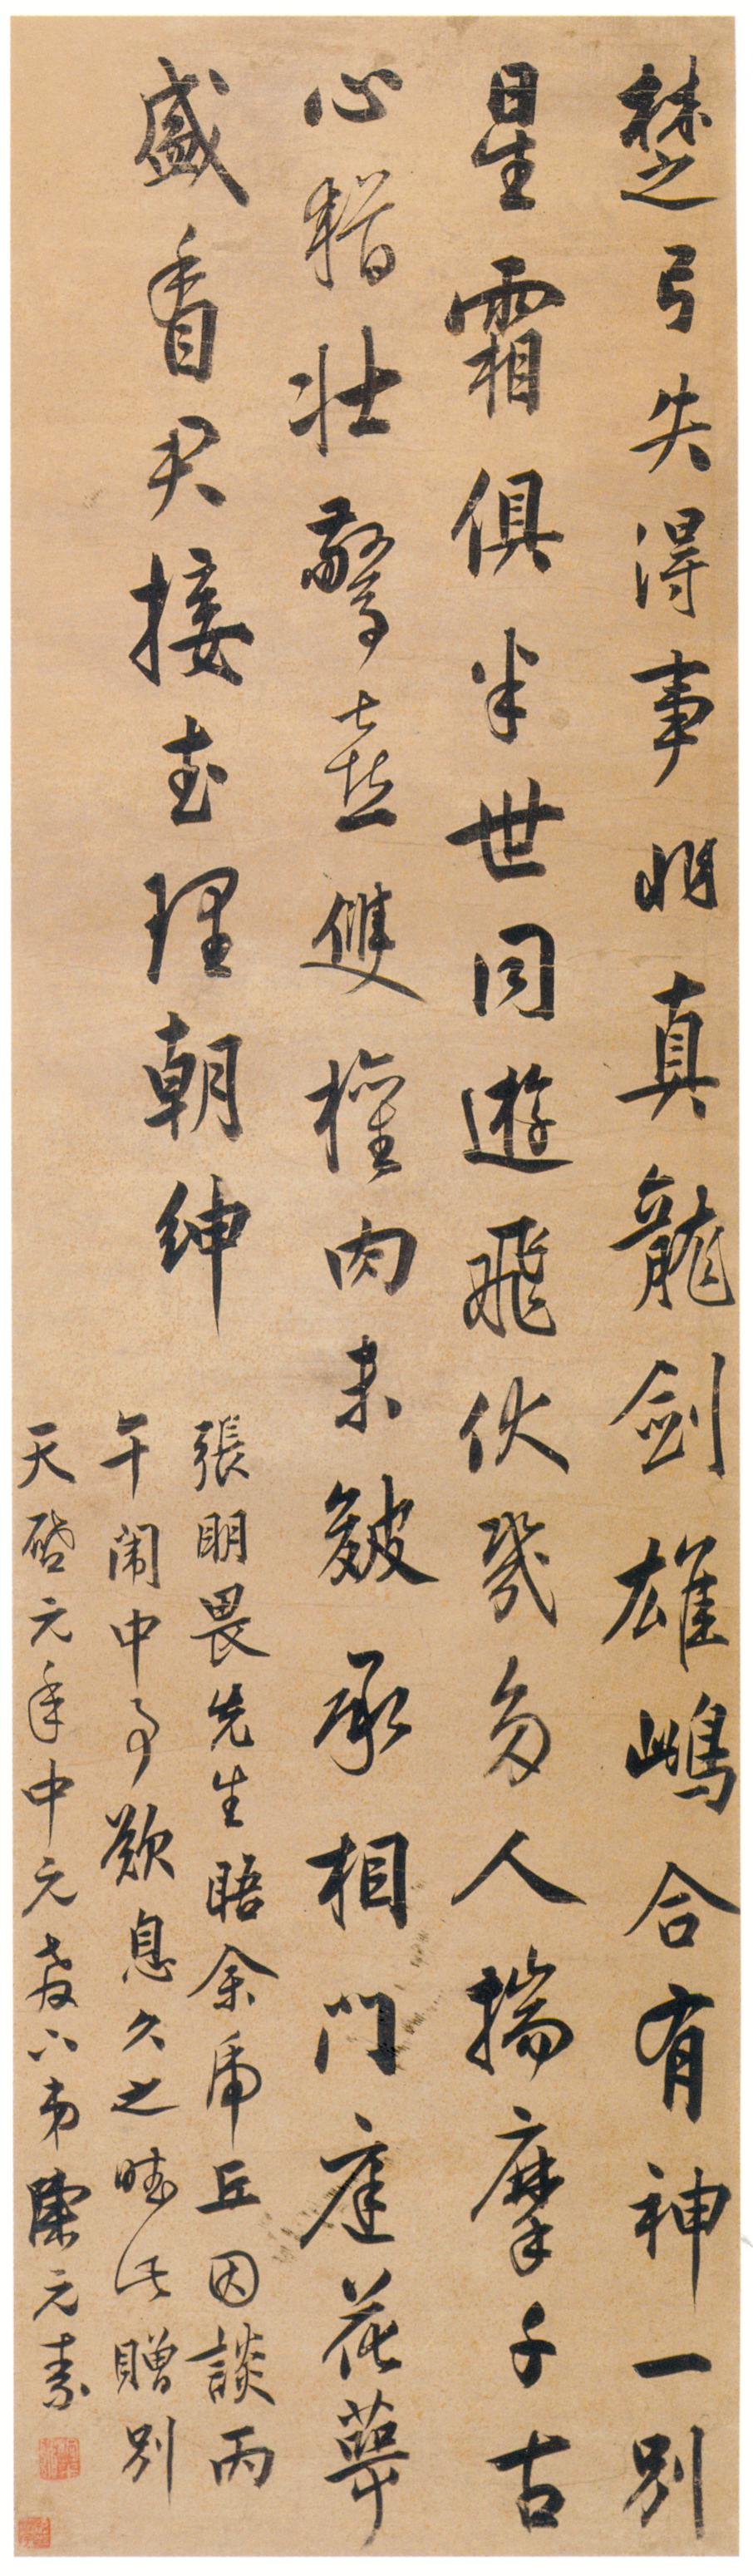 楚弓失得事非真龍劍雄鳴合有神一別
星霜俱半世同遊飛伏幾多人揣摩千古
心猶壮擊㐂雙權肉未皴承相門庭花萼
盛看君接武理朝紳
張明畏先生晤余虎丘因談丙
午闈中事歎息久之賦此贈別
天啓元年中元教下弟陳元素